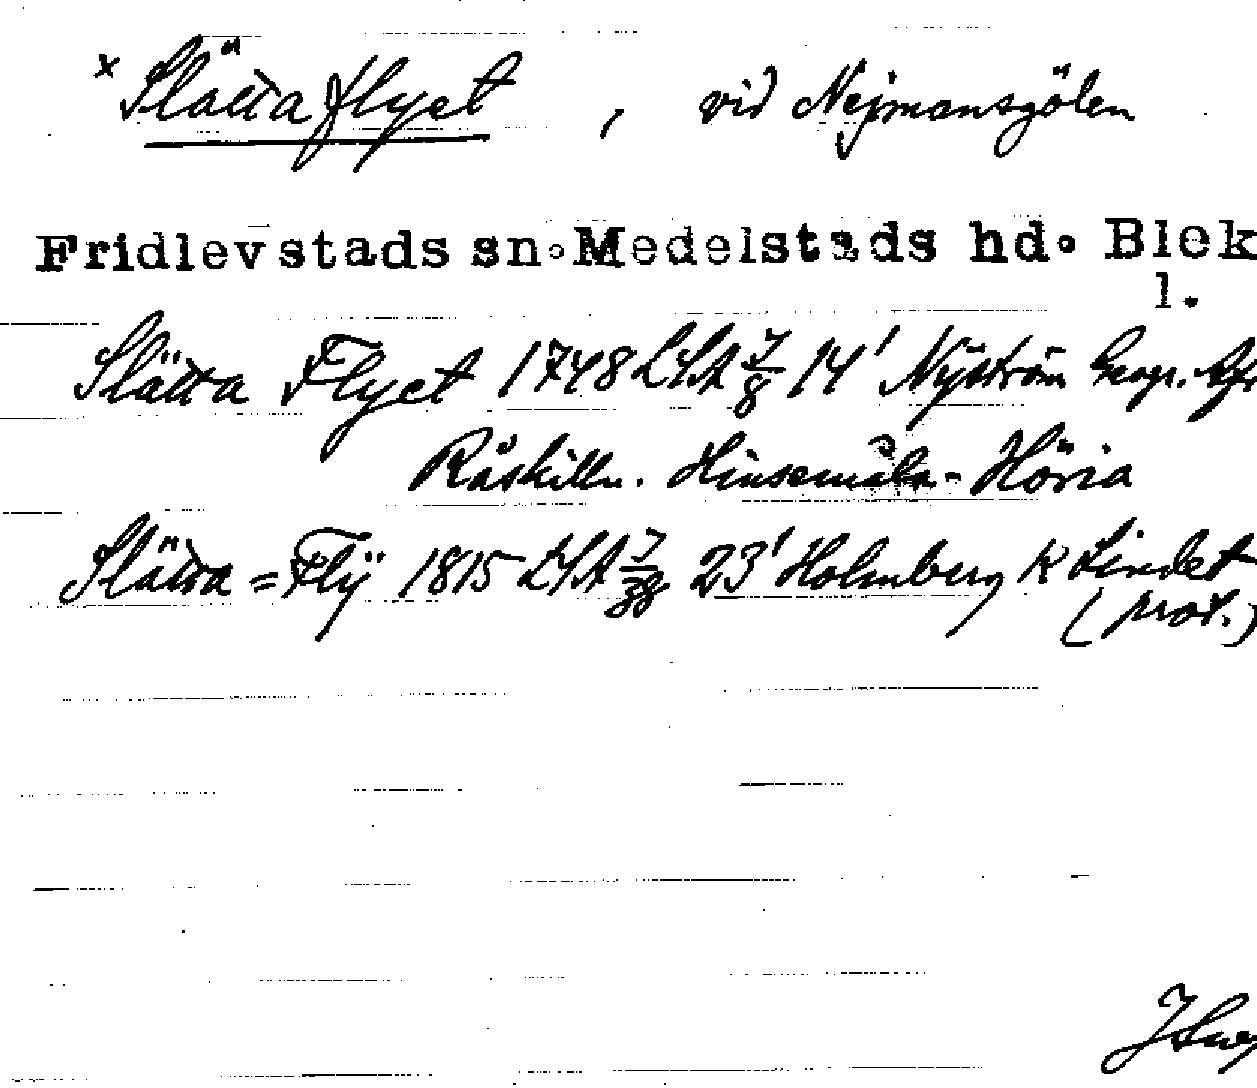 x Slätta flyet, vid Nejmansgölen
Fridlevstads sn. Medelstads hd. Blek
l.
Slätta Flyet 1748 LSA 7/8 14' Nyström Geogr. Afr
Råskilln. Hinsemåla - Höria
Slätta = Flÿ 1815 LSA 23' Holmberg K Lindet
(prot.)